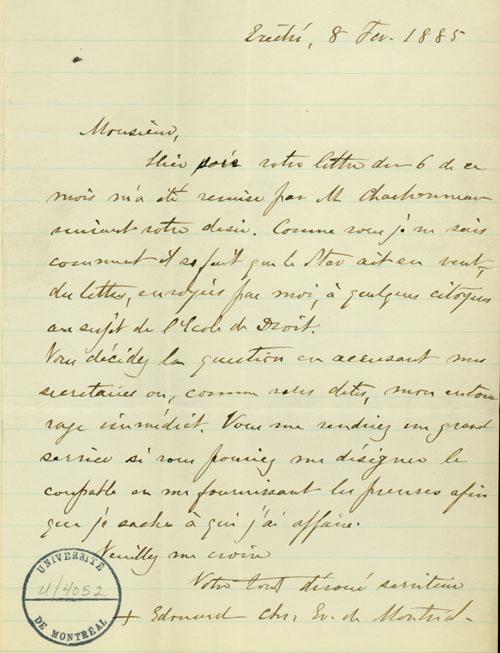 Evêché, 8 Fev. 1885
Monsieur,
Hier soir votre lettre du 6 de ce
mois m'a été remise par M Charbonneau
suivant votre désir. Comme vous je ne sais
comment il se fait que le Star ait eu vent
des lettres, envoyées par moi, à quelques citoyens
au sujet de l'Ecole de Droit.
Vous décidez la question en accusant mes
secretaires ou, comme vous dites, mon entou
rage immédiat. Vous me rendriez un grand
service si vous pouviez me désigner le
coupable en me fournissant les preuves afin
que je sache à qui j'ai affaire.
Veuillez me croire
Votre tout dévoué serviteur
+ Edouard Chs, Ev. de Montréal.
UNIVERSITÉ
U/4052
DE MONTRÉAL